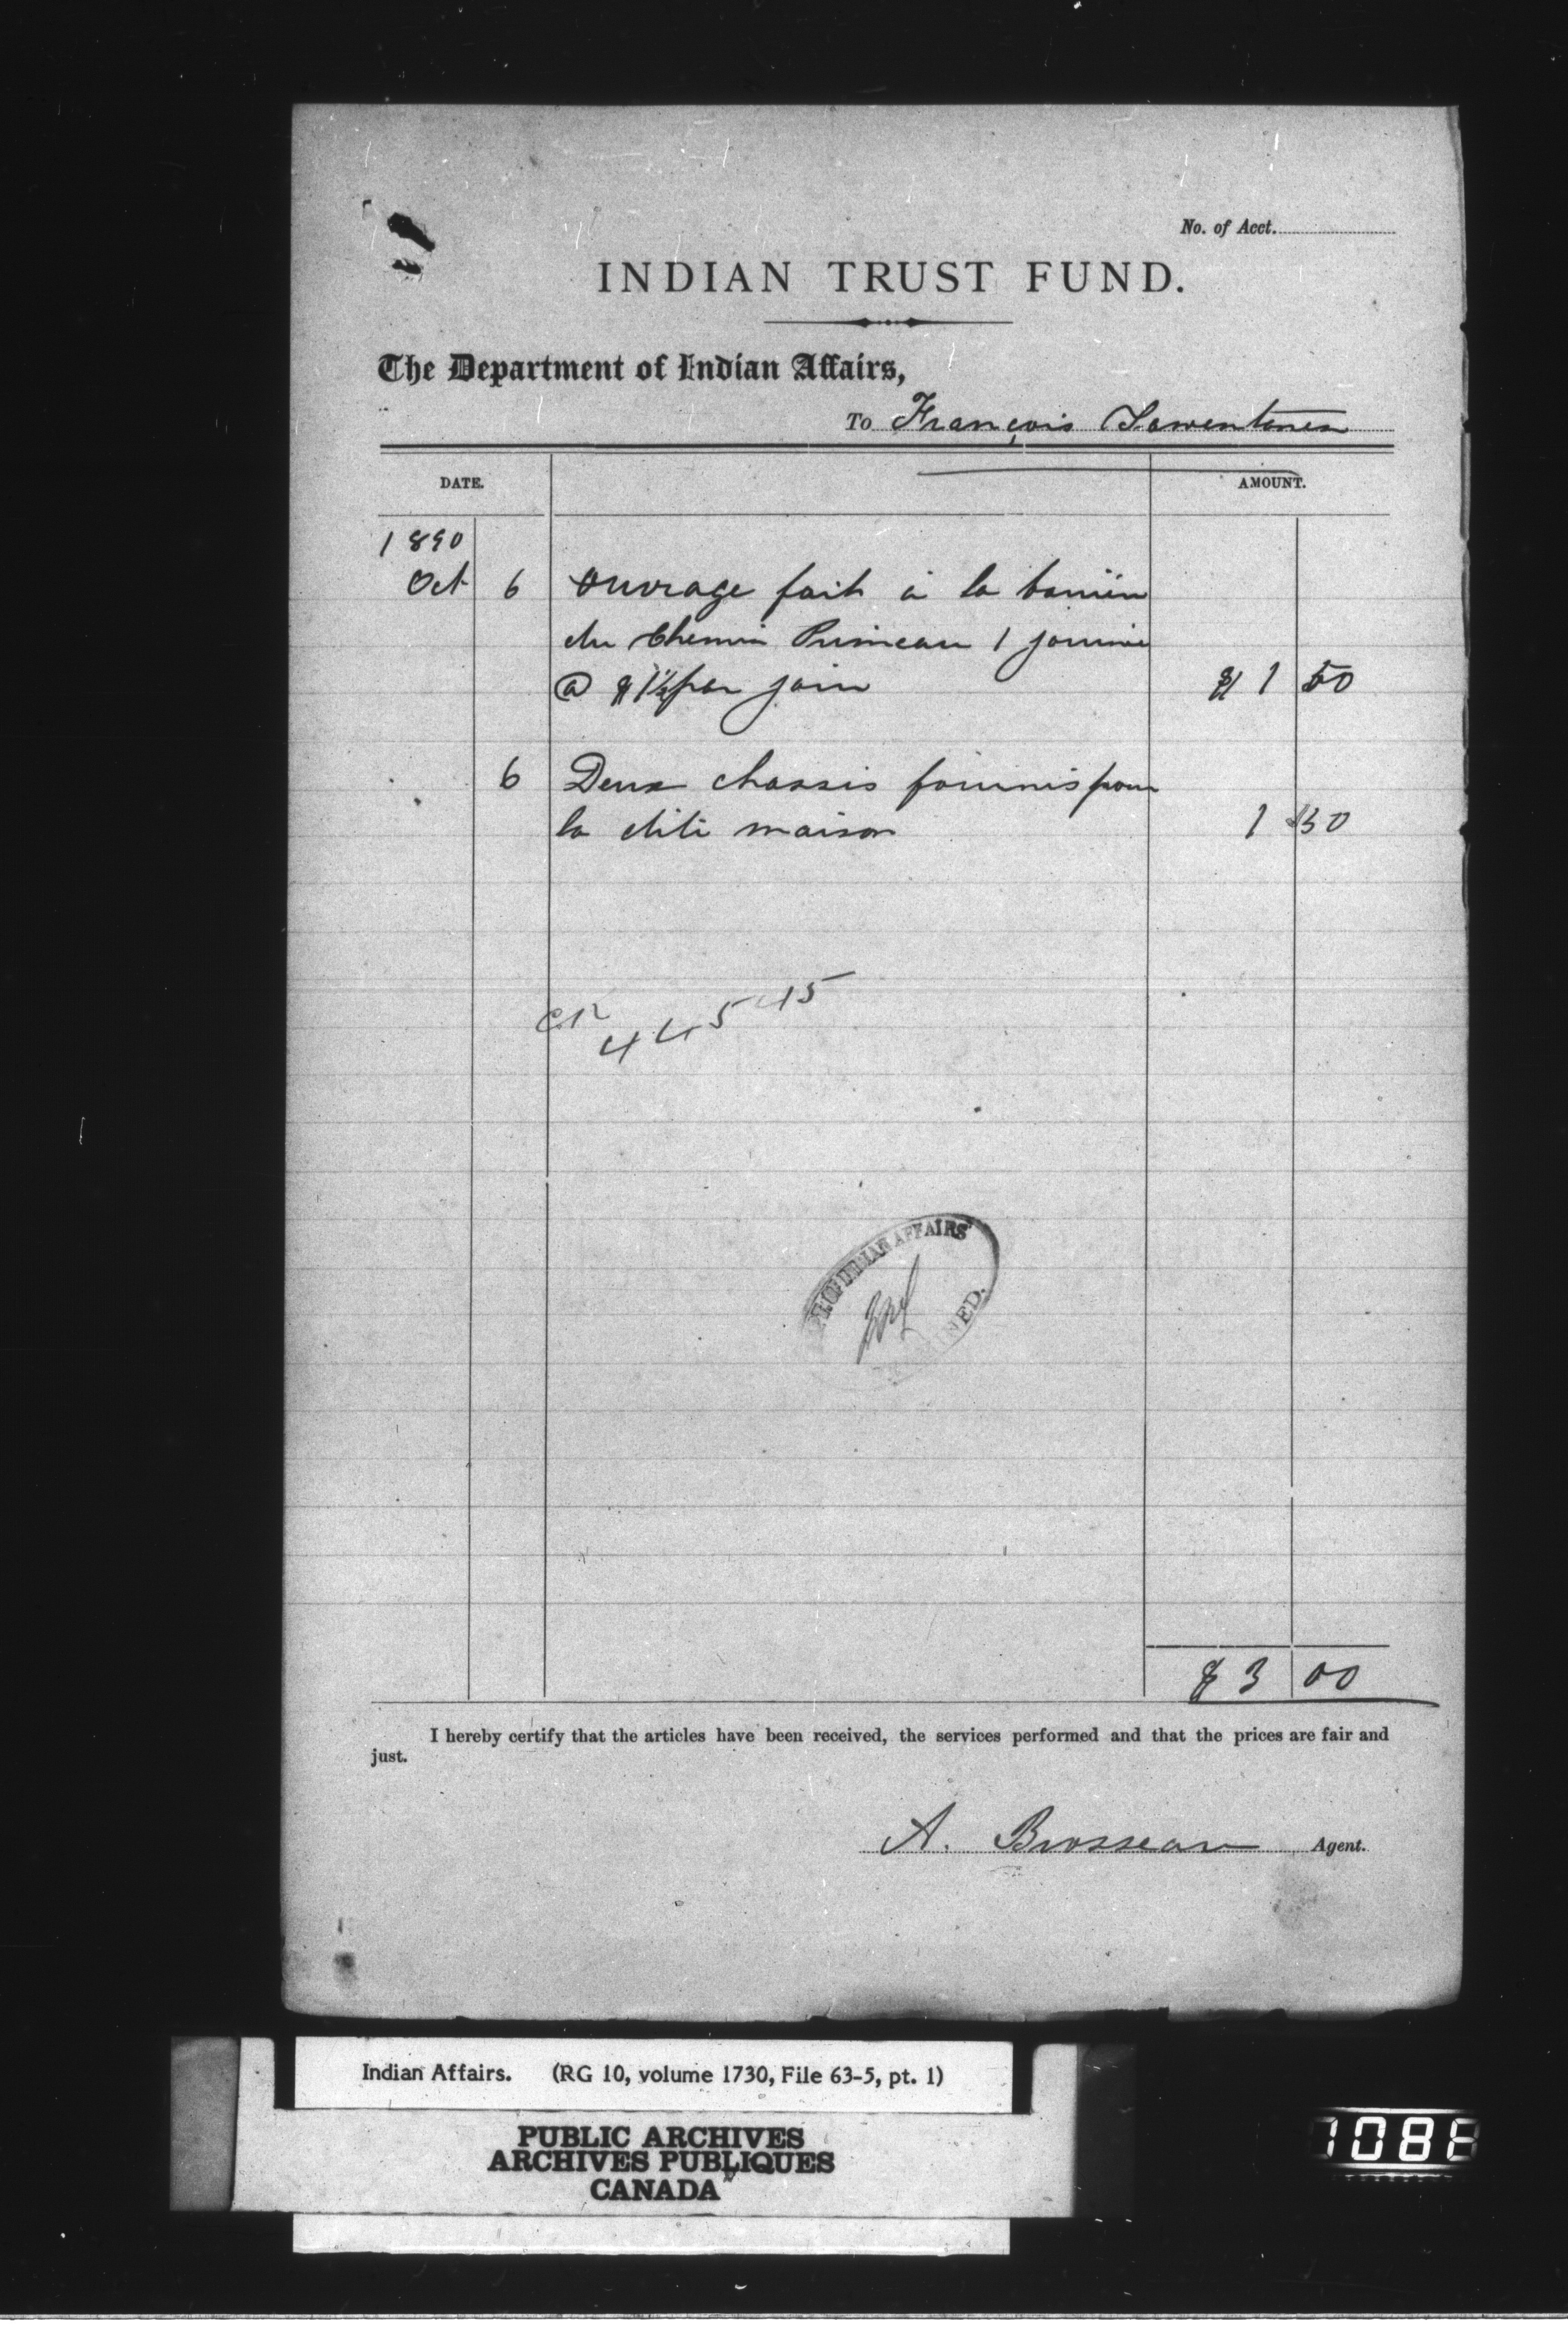 No. of Acct.
INDIAN TRUST FUND.
The Department of Indian Affairs,
To François
DATE.
AMOUNT.
1890
Oct 6 Ouvrage fait à la barrière
du Chemin Primeau 1 journée
@ $1½ par jour $1 50
6 Deux chassis fournis pour
la dite maison 1 50
44545
OF INDIAN AFFAIRS
$3 00
I hereby certify that the articles have been received, the services performed and that the prices are fair and
just.
A. Brosseau Agent.
Indian Affairs. (RG 10, volume 1730, File 63-5, pt. 1)
PUBLIC ARCHIVES
ARCHIVES PUBLIQUES
CANADA